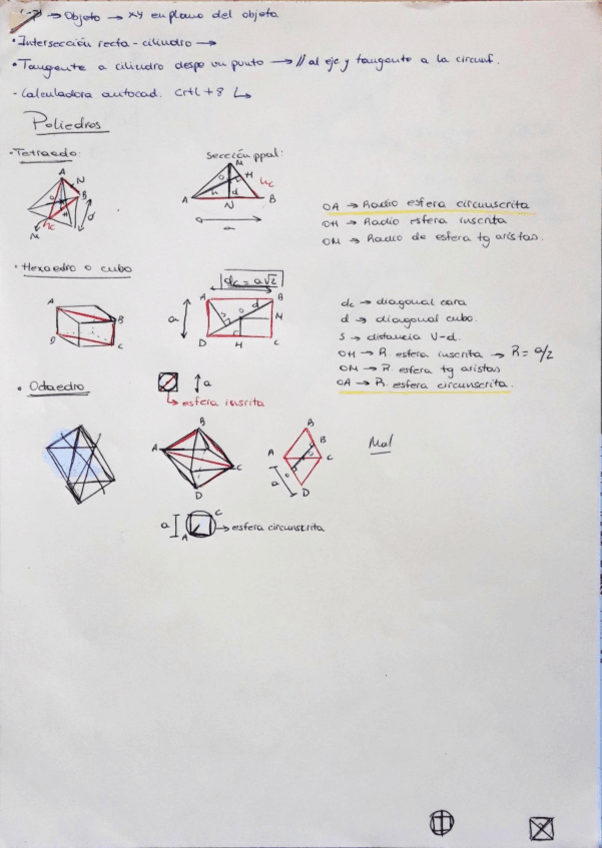 → Objeto → xy en plano del objeto
• Intersección recta - cilindro →
• Tangente a cilindro desde un punto → // al eje y tangente a la circunf.
- Calculadora autocad. Crtl + 8
Poliedros
• Tetraedo:
Sección ppal:
A N B O H M hc d
M O H hc h d A N B a
OA → Radio esfera circunscrita
OH → Radio esfera inscrita
OM → Radio de esfera tg aristas.
• Hexaedro o cubo
dc = a√2
A B D C
a A B d O M S D H C
dc → diagonal cara
d → diagonal cubo.
S → distancia V-d.
OH → R. esfera inscrita → R = a/2
OM → R. esfera tg aristas
OA → R. esfera circunscrita.
• Octaedro
a
→ esfera inscrita
B A C D
B A B C O a D
Mal
a A C → esfera circunscrita